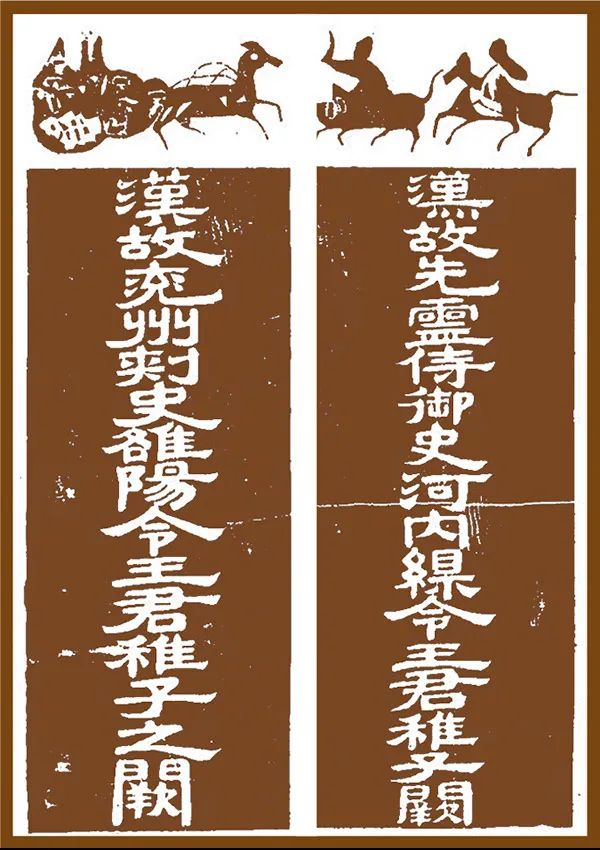 漢故先靈侍御史河內縣令王君稚子闕
漢故兗州刺史雒陽令王君稚子之闕